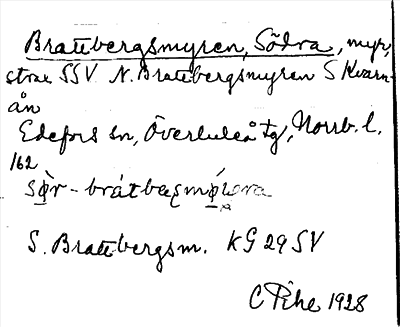 Brattbergsmyren, Södra, myr,
strax SSV N. Brattbergsmyren S Kvarn-
ån
Edefors sn, Överluleå tg, Norrb. l.
162
S. Brattbergsm. KG 29 SV
C Pihe 1928